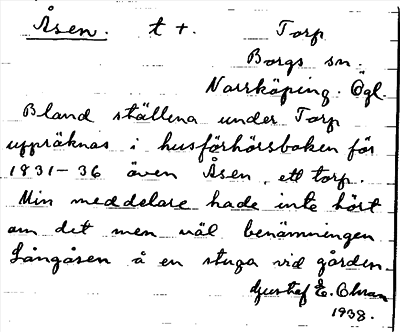 Åsen. t +. Torp
Borgs sn.
Norrköping. Ögl.
Bland ställena under Torp
uppräknas i husförhörsboken för
1831-36 även Åsen, ett torp.
Min meddelare hade inte hört
om det men väl benämningen
Långåsen å en stuga vid gården.
Gustaf E. Ohran
1938.